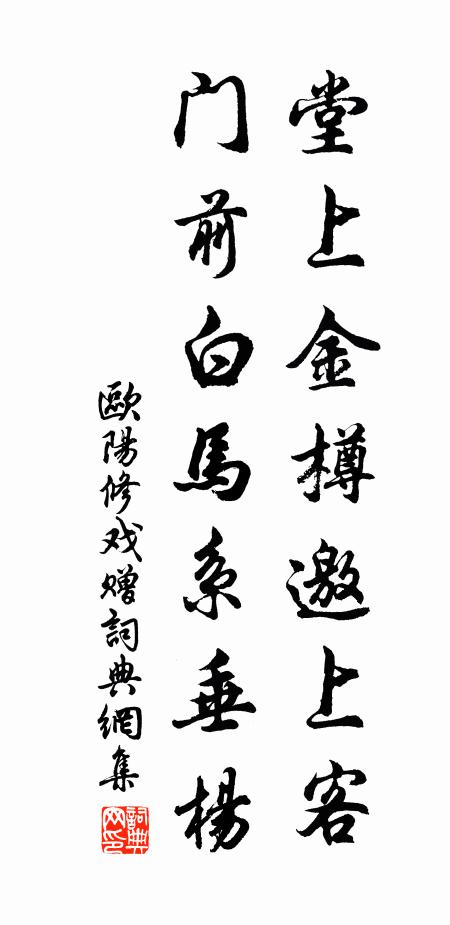 堂上金樽邀上客
门前白馬系垂楊
歐陽修戏赠詞典網集
詞典網印